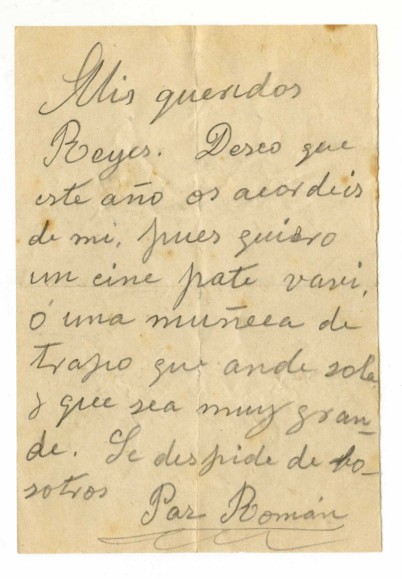 Mis queridos
Reyes. Deseo que
este año os acordéis
de mi, pues quiero
un cine pate vavi,
ó una muñeca de
trapo que ande sola
y que sea muy gran-
de. Se despide de bo-
sotros
Paz Román